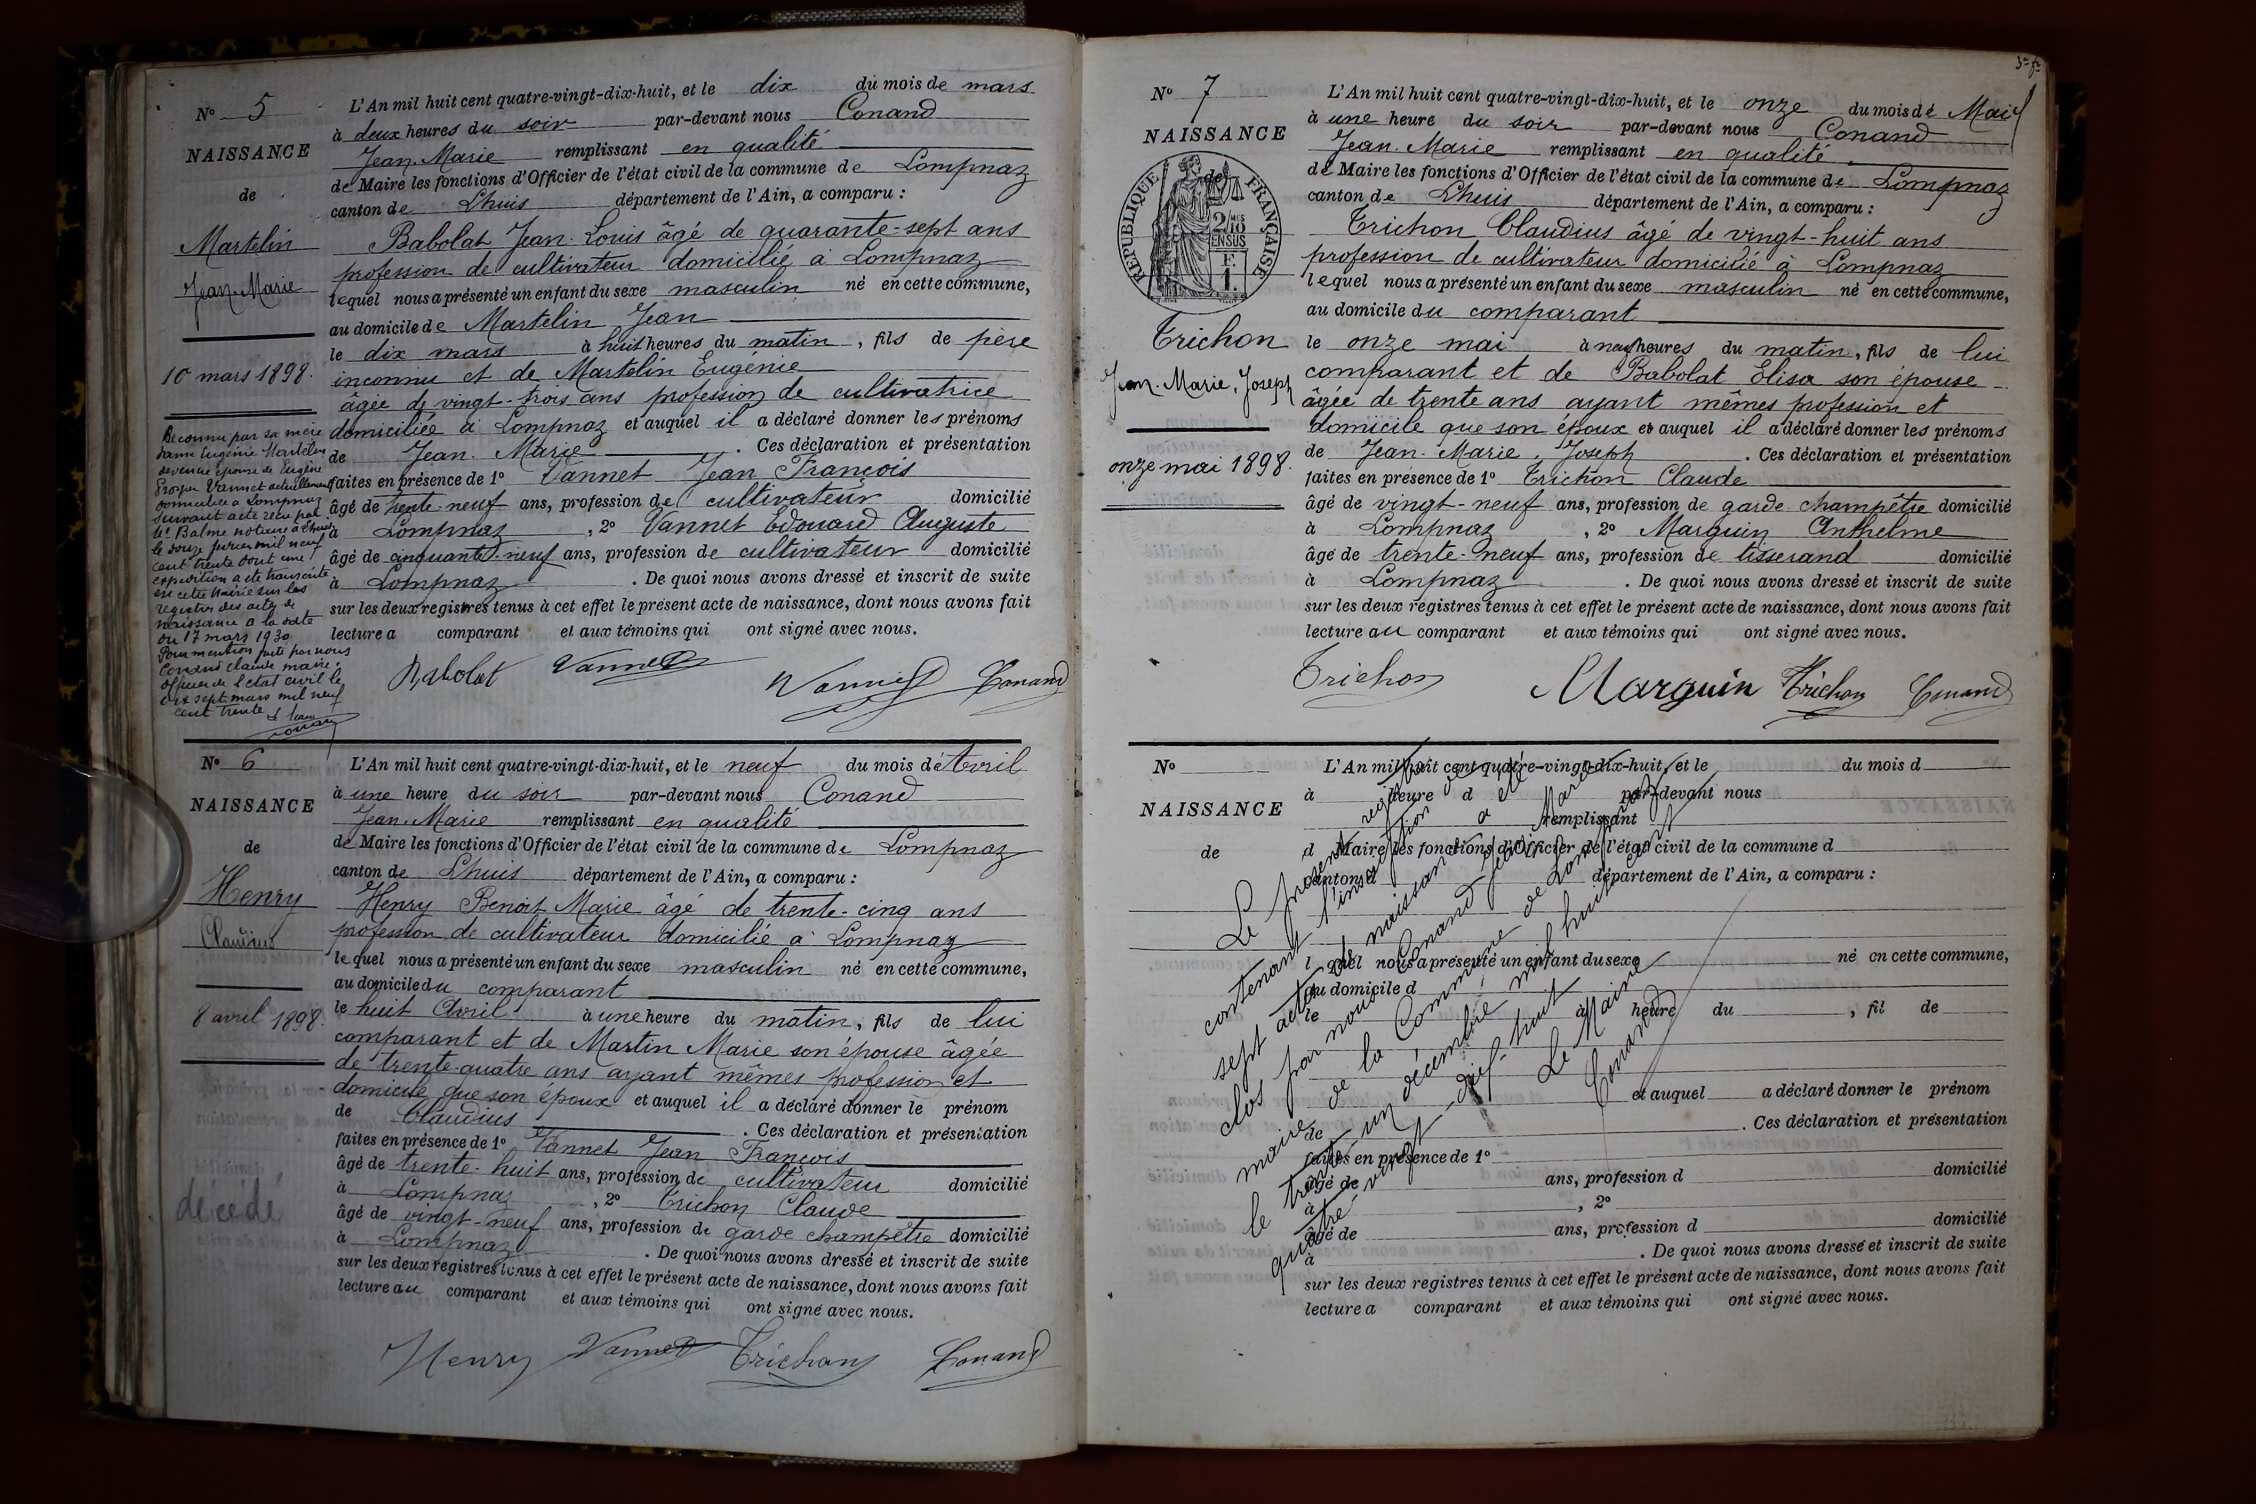 N° 5
NAISSANCE
de
Martelin
Jean-Marie
10 mars 1898.
Reconnu par sa mère
dame Eugénie Martelin
devenue épouse de Eugène
Prosper Vannet actuellement
domiciliée à Lompnaz
suivant acte reçu par
Me Balme notaire à Lhuis
le douze février mil neuf
cent trente dont une
expédition a été transcrite
en cette Mairie sur les
registres des actes de
naissance à la date
du 17 mars 1930
Pour mention faite par nous
Conand Claude maire
officier de l'état civil le
dix sept mars mil neuf
cent trente
Conand
L'An mil huit cent quatre-vingt-dix-huit, et le dix du mois de mars
à deux heures du soir par-devant nous Conand
Jean-Marie remplissant en qualité
de Maire les fonctions d'Officier de l'état civil de la commune de Lompnaz
canton de Lhuis département de l'Ain, a comparu :
Babolat Jean-Louis âgé de quarante-sept ans
profession de cultivateur domicilié à Lompnaz
lequel nous a présenté un enfant du sexe masculin né en cette commune,
au domicile de Martelin Jean
le dix mars à huit heures du matin, fils de père
inconnu et de Martelin Eugénie
âgée de vingt-trois ans profession de cultivatrice
domiciliée à Lompnaz et auquel il a déclaré donner les prénoms
de Jean-Marie . Ces déclaration et présentation
faites en présence de 1° Vannet Jean François
âgé de trente-neuf ans, profession de cultivateur domicilié
à Lompnaz , 2° Vannet Edouard Auguste
âgé de cinquante-neuf ans, profession de cultivateur domicilié
à Lompnaz . De quoi nous avons dressé et inscrit de suite
sur les deux registres tenus à cet effet le présent acte de naissance, dont nous avons fait
lecture a comparant et aux témoins qui ont signé avec nous.
Babolat Vannet Vannet Conand
N° 6
NAISSANCE
de
Henry
Claudius
8 avril 1898.
décédé
L'An mil huit cent quatre-vingt-dix-huit, et le neuf du mois d'Avril
à une heure du soir par-devant nous Conand
Jean-Marie remplissant en qualité
de Maire les fonctions d'Officier de l'état civil de la commune de Lompnaz
canton de Lhuis département de l'Ain, a comparu :
Henry Benoit Marie âgé de trente-cinq ans
profession de cultivateur domicilié à Lompnaz
lequel nous a présenté un enfant du sexe masculin né en cette commune,
au domicile du comparant
le huit Avril à une heure du matin, fils de lui
comparant et de Martin Marie son épouse âgée
de trente-quatre ans ayant mêmes profession et
domicile que son époux et auquel il a déclaré donner le prénom
de Claudius . Ces déclaration et présentation
faites en présence de 1° Vannet Jean François
âgé de trente-huit ans, profession de cultivateur domicilié
à Lompnaz , 2° Trichon Claude
âgé de vingt-neuf ans, profession de garde champêtre domicilié
à Lompnaz . De quoi nous avons dressé et inscrit de suite
sur les deux registres tenus à cet effet le présent acte de naissance, dont nous avons fait
lecture au comparant et aux témoins qui ont signé avec nous.
Henry Vannet Trichon Conand
N° 7
NAISSANCE
de
RÉPUBLIQUE FRANÇAISE
2/10 EN SUS
F.
1.
Trichon
Jean-Marie, Joseph
onze mai 1898.
L'An mil huit cent quatre-vingt-dix-huit, et le onze du mois de Mai
à une heure du soir par-devant nous Conand
Jean-Marie remplissant en qualité
de Maire les fonctions d'Officier de l'état civil de la commune de Lompnaz
canton de Lhuis département de l'Ain, a comparu :
Trichon Claudius âgé de vingt-huit ans
profession de cultivateur domicilié à Lompnaz
lequel nous a présenté un enfant du sexe masculin né en cette commune,
au domicile du comparant
le onze mai à neuf heures du matin, fils de lui
comparant et de Babolat Elisa son épouse
âgée de trente ans ayant mêmes profession et
domicile que son époux et auquel il a déclaré donner les prénoms
de Jean-Marie, Joseph . Ces déclaration et présentation
faites en présence de 1° Trichon Claude
âgé de vingt-neuf ans, profession de garde champêtre domicilié
à Lompnaz , 2° Marguin Anthelme
âgé de trente-neuf ans, profession de tisserand domicilié
à Lompnaz . De quoi nous avons dressé et inscrit de suite
sur les deux registres tenus à cet effet le présent acte de naissance, dont nous avons fait
lecture au comparant et aux témoins qui ont signé avec nous.
Trichon Marguin Trichon Conand
N°
NAISSANCE
de
L'An mil huit cent quatre-vingt-dix-huit, et le du mois d
à heure d par-devant nous
remplissant
d Maire les fonctions d'Officier de l'état civil de la commune d
canton d département de l'Ain, a comparu :
l quel nous a présenté un enfant du sexe né en cette commune,
au domicile d
le à heure du , fil de
et auquel a déclaré donner le prénom
de . Ces déclaration et présentation
faites en présence de 1°
âgé de ans, profession d domicilié
à , 2°
âgé de ans, profession d domicilié
à . De quoi nous avons dressé et inscrit de suite
sur les deux registres tenus à cet effet le présent acte de naissance, dont nous avons fait
lecture a comparant et aux témoins qui ont signé avec nous.
Le présent registre
contenant l'inscription de
sept actes de naissance a été
clos par nous Conand Jean Marie
maire de la Commune de Lompnaz
le trente un décembre mil huit cent
quatre vingt-dix-huit
Le Maire
Conand